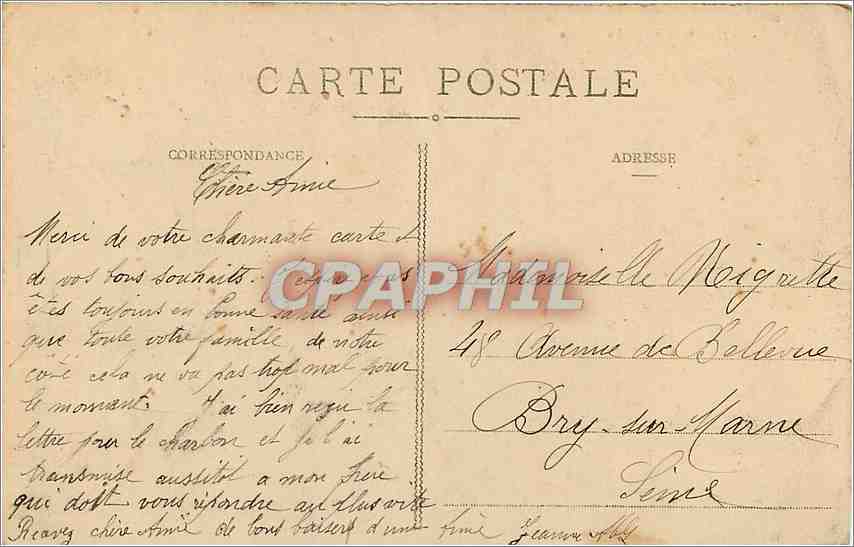 CARTE POSTALE
CORRESPONDANCE
Chère Amie
Merci de votre charmante carte et
de vos bons souhaits. J'espère vous
êtes toujours en bonne santé ainsi
que toute votre famille, de notre
côté cela ne va pas trop mal pour
le momant. J'ai bien reçu la
lettre pour le charbon et je l'ai
transmise aussitôt a mon frère
qui doit vous répondre au plus vite
Recevez chère Amie de bons baisers d'une Amie Jeanne
ADRESSE
Mademoiselle Nigrette
48 Avenue de Bellevue
Bry-sur-Marne
Seine
CPAPHIL